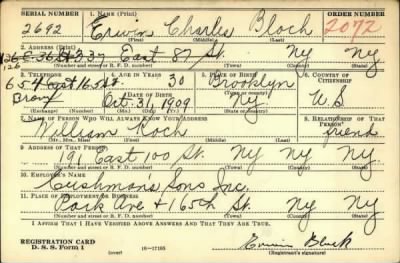 SERIAL NUMBER 1. NAME (Print) ORDER NUMBER
2692 Erwin Charles Bloch 2072
(First) (Middle) (Last)
2. ADDRESS (Print)
337 East 87 St. NY NY
126
(Number and street or R. F. D. number) (Town) (County) (State)
3. TELEPHONE 4. AGE IN YEARS 5. PLACE OF BIRTH 6. COUNTRY OF CITIZENSHIP
654 East 165 St. 30 Brooklyn
Bronx DATE OF BIRTH
Oct. 31, 1909 NY. U S
7. NAME OF PERSON WHO WILL ALWAYS KNOW YOUR ADDRESS 8. RELATIONSHIP OF THAT PERSON
William Koch friend
(Mr., Mrs., Miss) (First) (Middle) (Last)
9. ADDRESS OF THAT PERSON
191 East 100 St. NY NY NY.
(Number and street or R. F. D. number) (Town) (County) (State)
10. EMPLOYER'S NAME
Cushmans Sons Inc.
11. PLACE OF EMPLOYMENT OR BUSINESS
Park Ave & 165th St. NY NY NY.
(Number and street or R. F. D. number) (Town) (County) (State)
I AFFIRM THAT I HAVE VERIFIED ABOVE ANSWERS AND THAT THEY ARE TRUE.
REGISTRATION CARD
D. S. S. Form 1 (over) 16—17105 Erwin Bloch
(Registrant's signature)